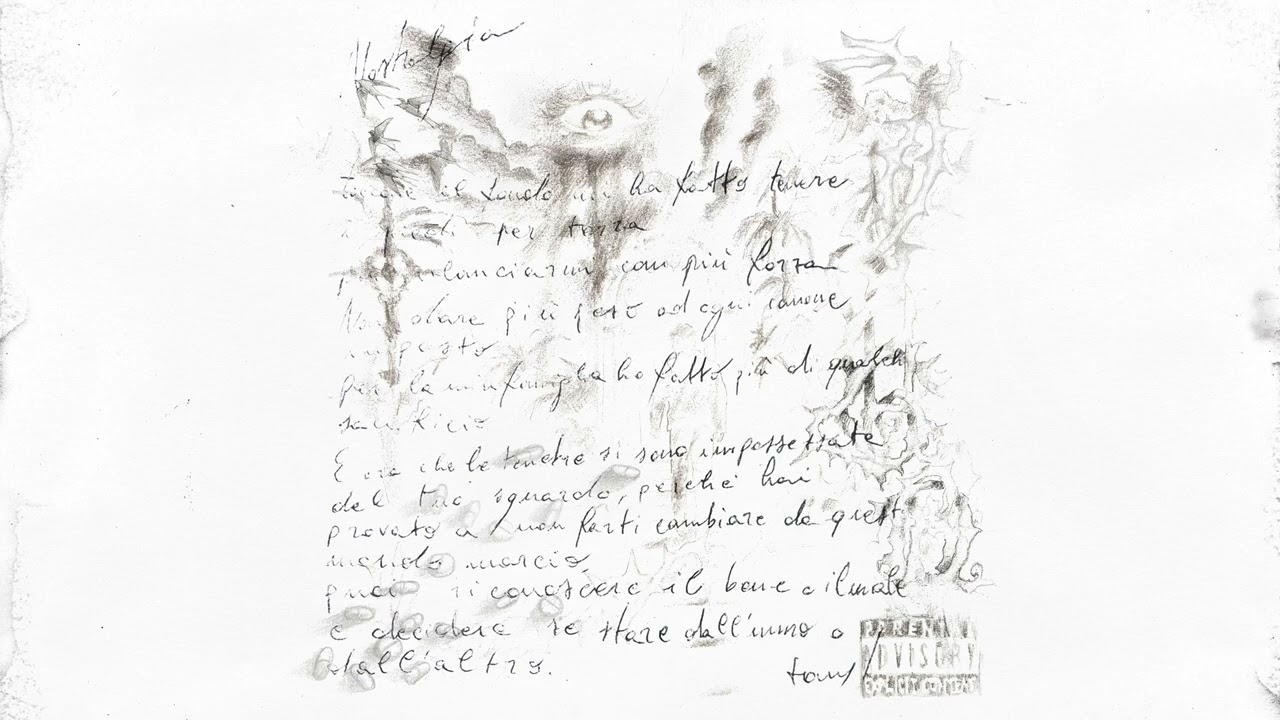 Nostalgia
Toccare il fondo mi ha fatto tenere
i piedi per terra
per rilanciarmi con più forza
Non dare più peso ad ogni canone
imposto
per la mia famiglia ho fatto più di qualche
sacrificio
E ora che le tenebre si sono impossessate
del tuo sguardo, perché hai
provato a non farti cambiare da questo
mondo marcio,
puoi riconoscere il bene e il male
e decidere se stare dall'uno o
dall'altro.
tony
PARENTAL
ADVISORY
EXPLICIT CONTENT